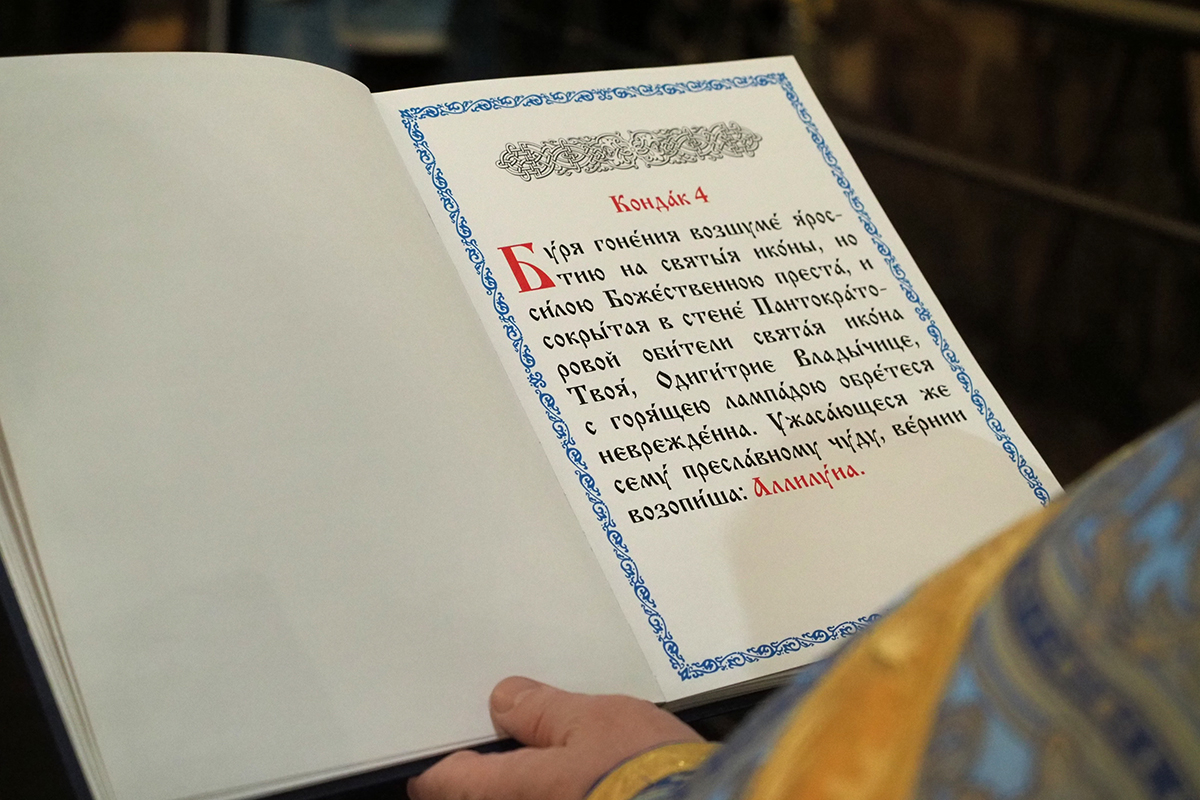 Конда́к 4
Бу́ря гоне́ния возшуме́ я́рос-
тию на святы́я ико́ны, но
си́лою Боже́ственною преста́, и
сокры́тая в стене́ Пантокра́то-
ровой оби́тели свята́я ико́на
Твоя́, Одиги́трие Влады́чице,
с горя́щею лампа́дою обре́теся
неврежде́нна. Ужаса́ющеся же
сему́ пресла́вному чу́ду, ве́рнии
возопи́ша: Аллилу́иа.